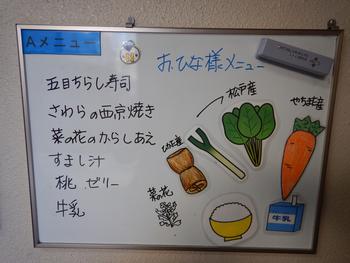 Aメニュー
おひな様メニュー
五目ちらし寿司
さわらの西京焼き
菜の花のからしあえ
すまし汁
桃 ゼリー
牛乳
松戸産
やちまた産
菜の花
牛乳